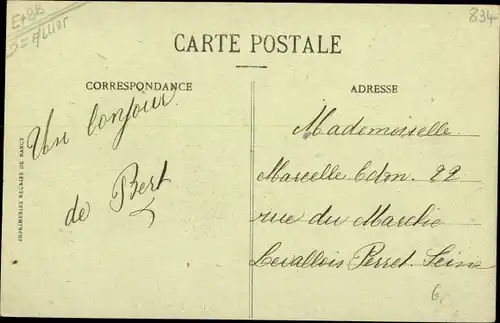 E+BB
D=Allier
834
CARTE POSTALE
CORRESPONDANCE
ADRESSE
Un bonjour
de Bert
Mademoiselle
Marcelle Edm. 22
rue du Marché
Levallois Perret. Seine
6
IMPRIMERIES REUNIES DE NANCY